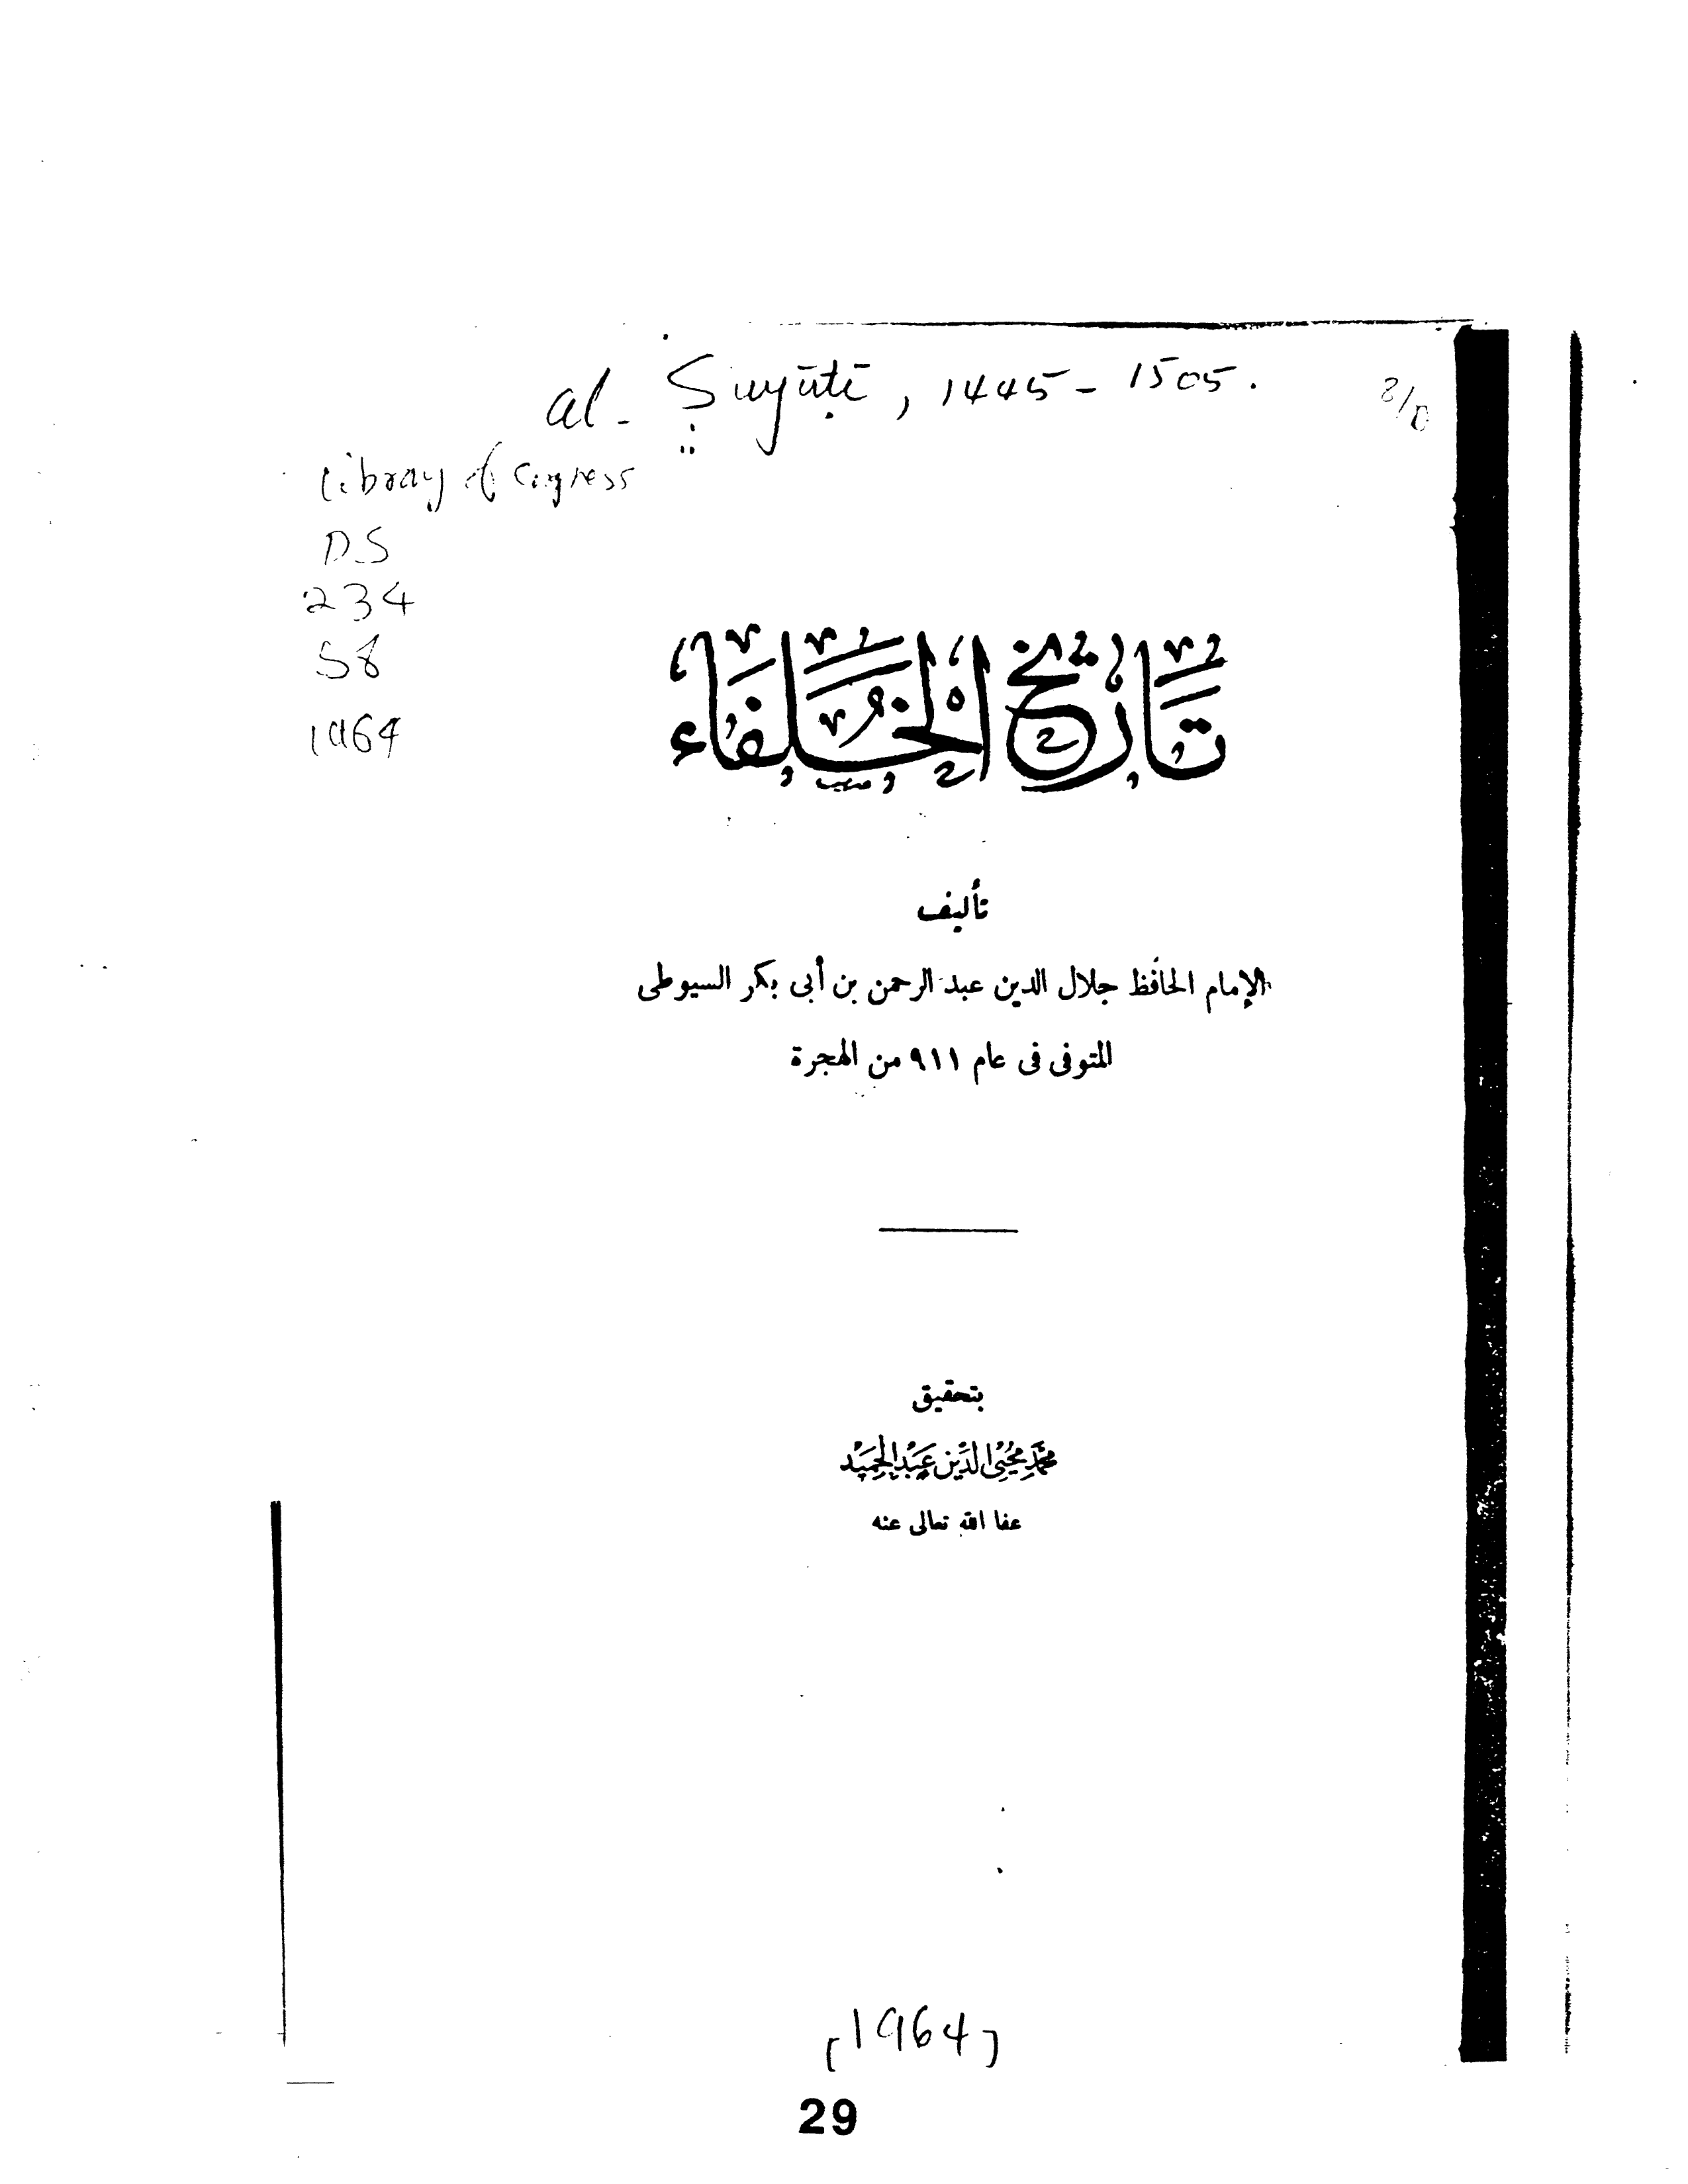 al-Suyūṭī, 1445-1505.
Library of Congress
DS
234
S8
1964
تاريخ الخلفاء
تأليف
الإمام الحافظ جلال الدين عبد الرحمن بن أبى بكر السيوطى
المتوفى فى عام ٩١١ من الهجرة
بتحقيق
محمد محيى الدين عبد الحميد
عفا الله تعالى عنه
[1964]
29